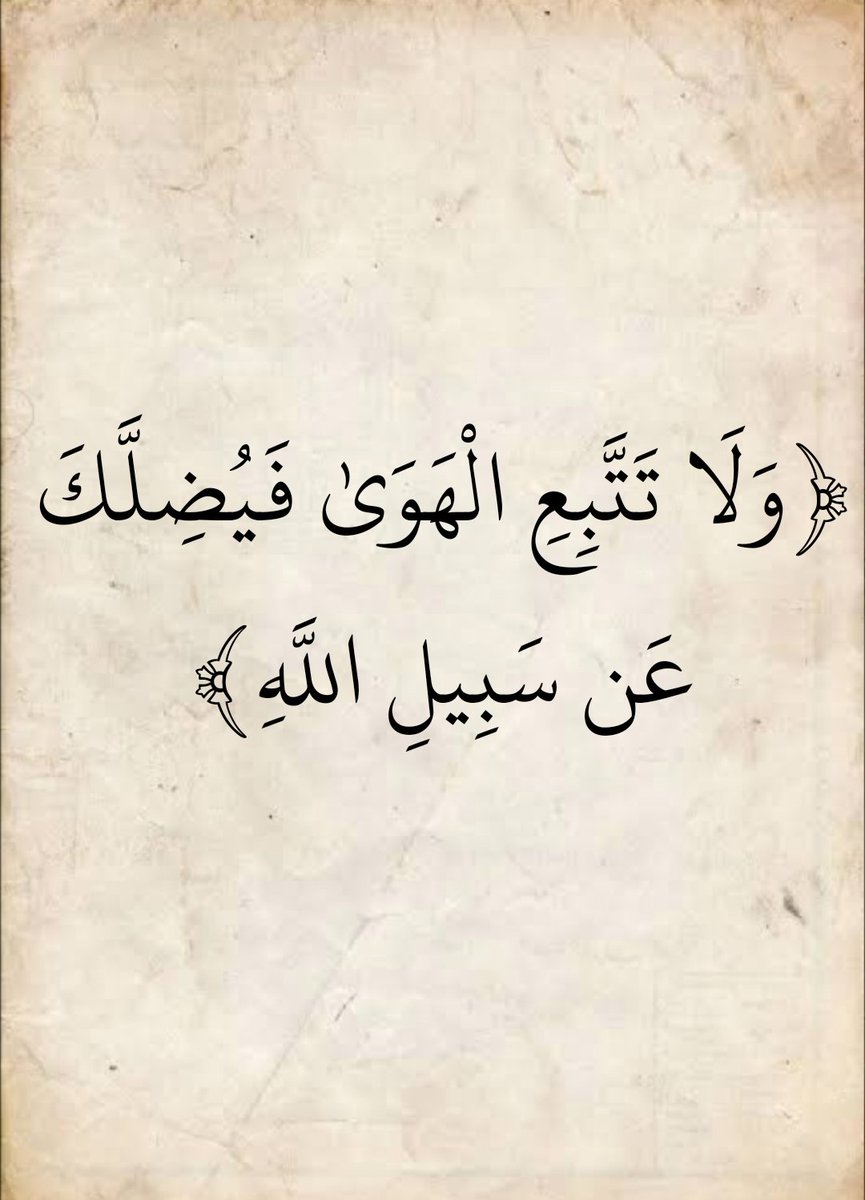 ﴿وَلَا تَتَّبِعِ الْهَوَىٰ فَيُضِلَّكَ
عَن سَبِيلِ اللَّهِ﴾